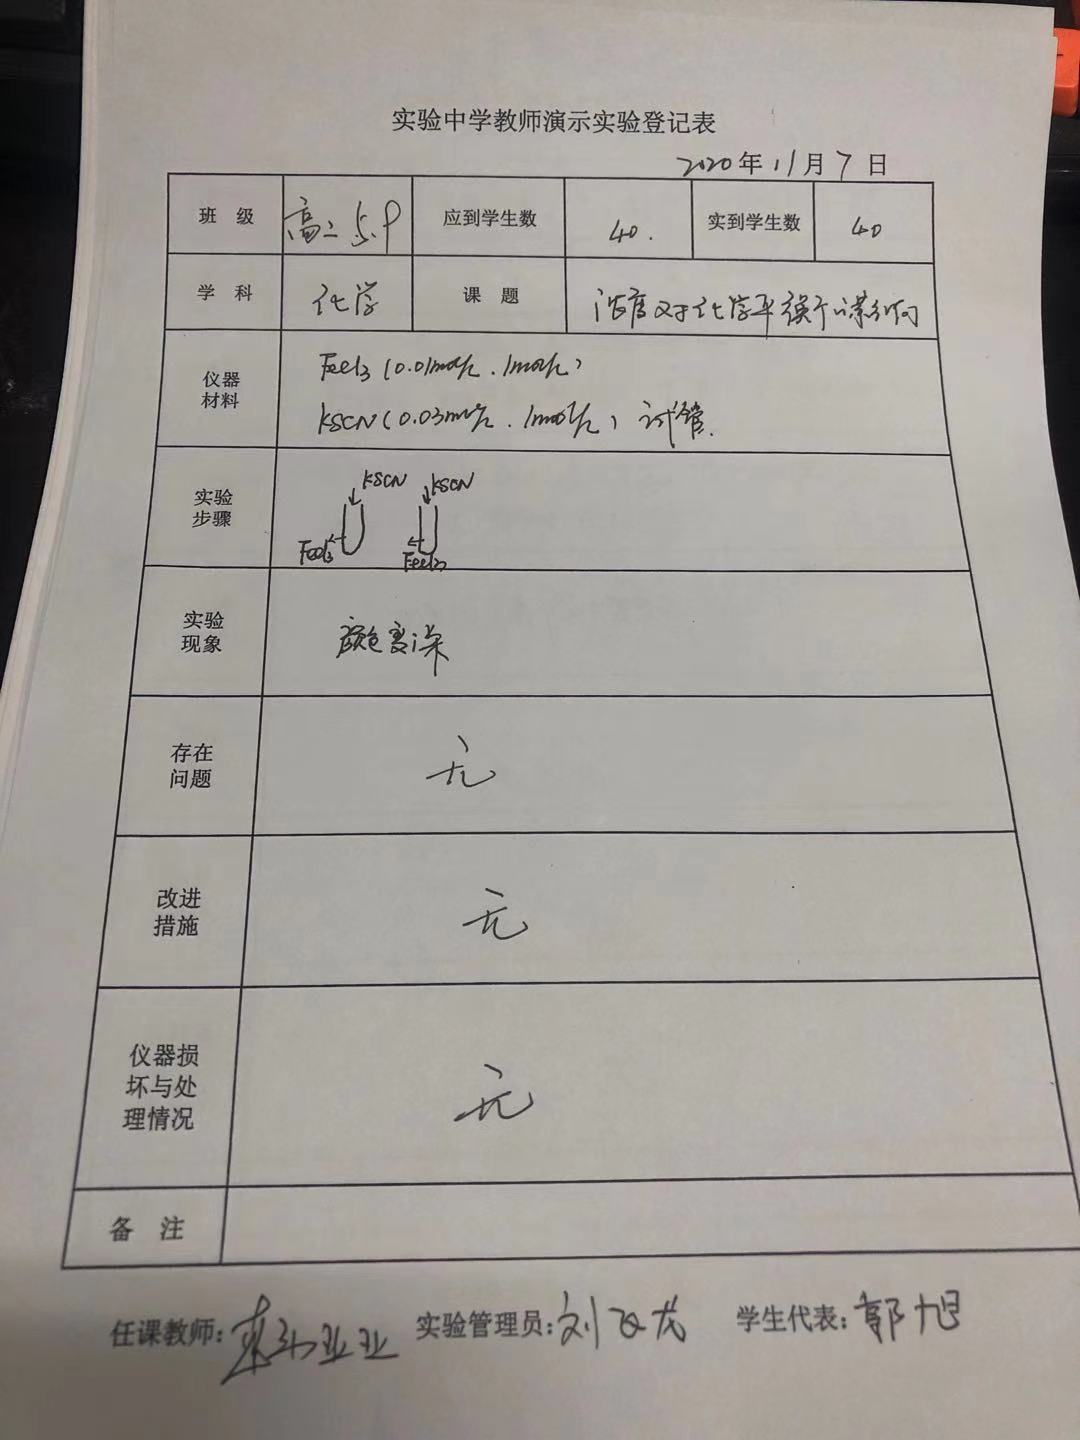 实验中学教师演示实验登记表
2020年11月7日
班 级 高二 5.9 应到学生数 40. 实到学生数 40
学 科 化学 课 题 浓度对化学平衡的影响
仪器材料 FeCl3(0.01mol/L.1mol/L)
KSCN(0.03mol/L.1mol/L) 试管.
实验步骤
KSCN KSCN
FeCl3 FeCl3
实验现象 颜色变深
存在问题 无
改进措施 无
仪器损坏与处理情况 无
备 注
任课教师: 实验管理员:刘 龙 学生代表:郭旭